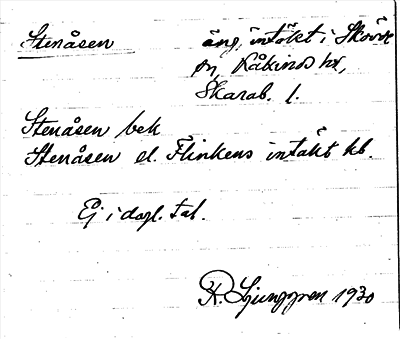 Stenåsen äng, intäkt i Skövde
sn, Kåkinds hd,
Skarab. l.
Stenåsen bek
Stenåsen el. Flinkens intäkt kb.
Ej i dagl. tal.
R. Ljunggren 1930